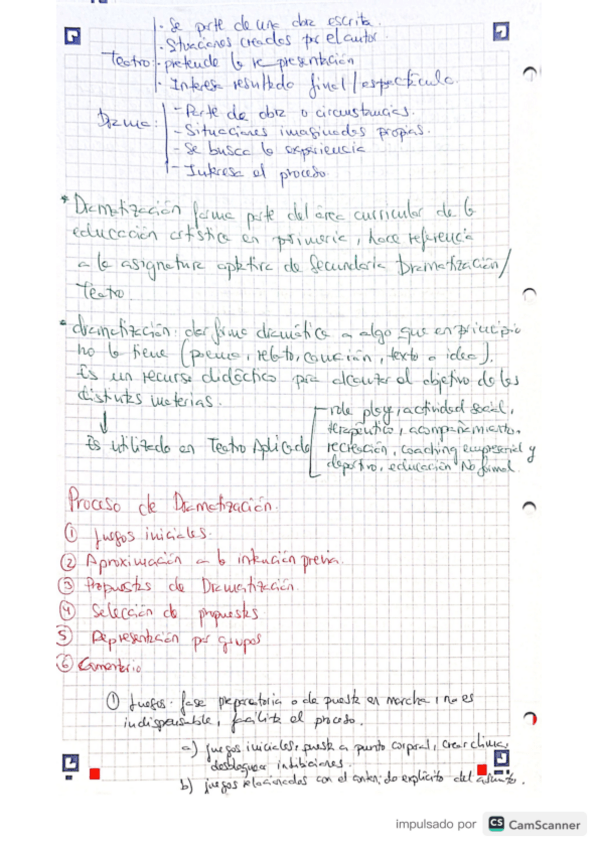 - Se parte de una obra escrita.
- Situaciones creadas por el autor.
Teatro: - pretende la representación
- Interesa resultado final / espectáculo.
- Parte de obra o circunstancias.
Drama: - Situaciones imaginadas propias.
- Se busca la experiencia
- Interesa el proceso
* Dramatización forma parte del área curricular de la
educación artística en primaria, hace referencia
a la asignatura optativa de Secundaria Dramatización/
Teatro.
• dramatización: dar forma dramática a algo que en principio
no la tiene (poema, relato, canción, texto o idea).
Es un recurso didáctico para alcanzar el objetivo de las
distintas materias.
role play, actividad social,
terapéutico, acompañamiento,
↓
Es utilizado en Teatro Aplicado
recreación, coaching empresarial y
deportivo, educación No formal.
Proceso de Dramatización
① Juegos iniciales.
② Aproximación a la intención previa.
③ Propuestas de Dramatización
④ Selección de propuestas
⑤ Representación por grupos
⑥ Comentario
① Juegos: fase preparatoria o de puesta en marcha, no es
indispensable, facilita el proceso.
a) juegos iniciales, puesta a punto corporal, crear clima,
desbloquear inhibiciones.
b) juegos relacionados con el contenido explícito del asunto.
impulsado por CS CamScanner